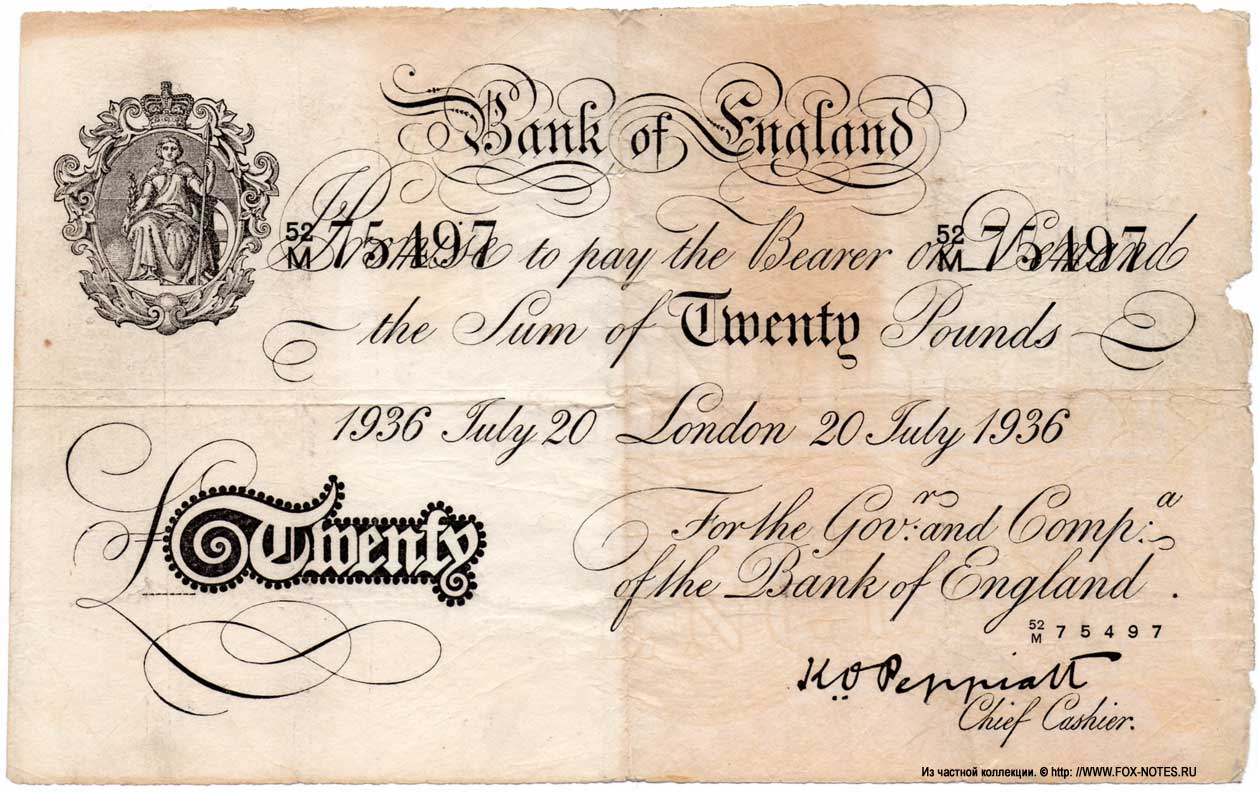 Bank of England
52/M 75497 52/M 75497
I Promise to pay the Bearer on Demand
the Sum of Twenty Pounds
1936 July 20 London 20 July 1936
£Twenty
For the Gov:r and Comp:a
of the Bank of England.
52/M 75497
K O Peppiatt
Chief Cashier.
Из частной коллекции. © http: //WWW.FOX-NOTES.RU